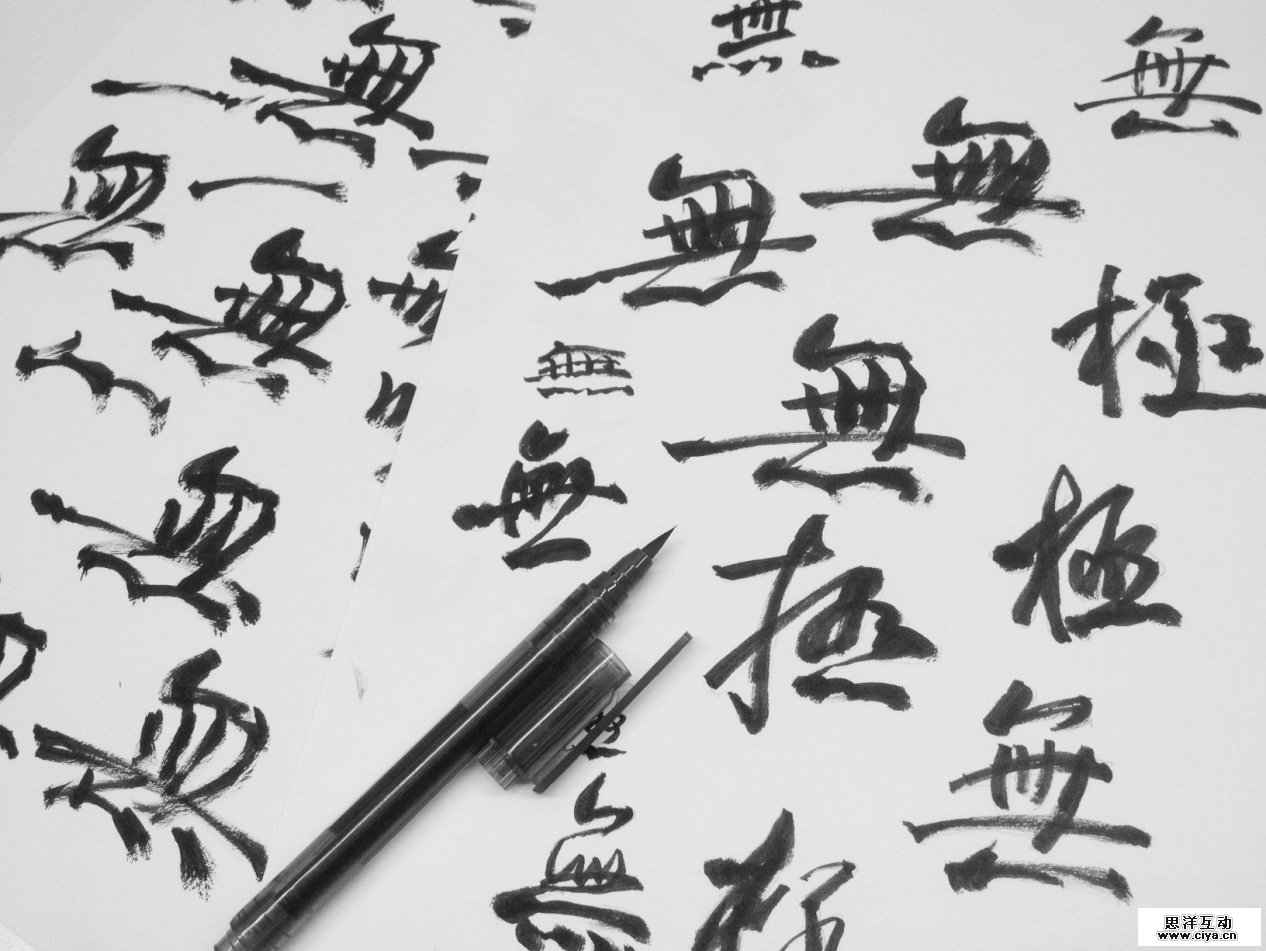 無
無
無
無
無
無
無
極
無
無
無
極
無
極
無
無
無
無
思洋互动
www.ciya.cn